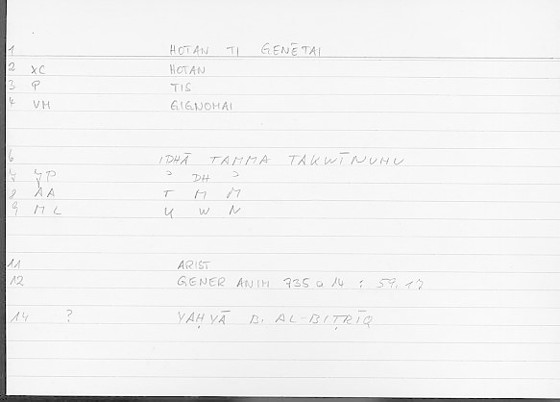 1 HOTAN TI GENĒTAI
2 XC HOTAN
3 P TIS
4 VM GIGNOMAI
6 IDHĀ TAMMA TAKWĪNUHU
P ʾ DH ʾ
8 AA T M M
9 ML K W N
11 ARIST
12 GENER ANIM 735 a 14 : 59.17
14 ? YAḤYĀ B. AL-BIṬRĪQ